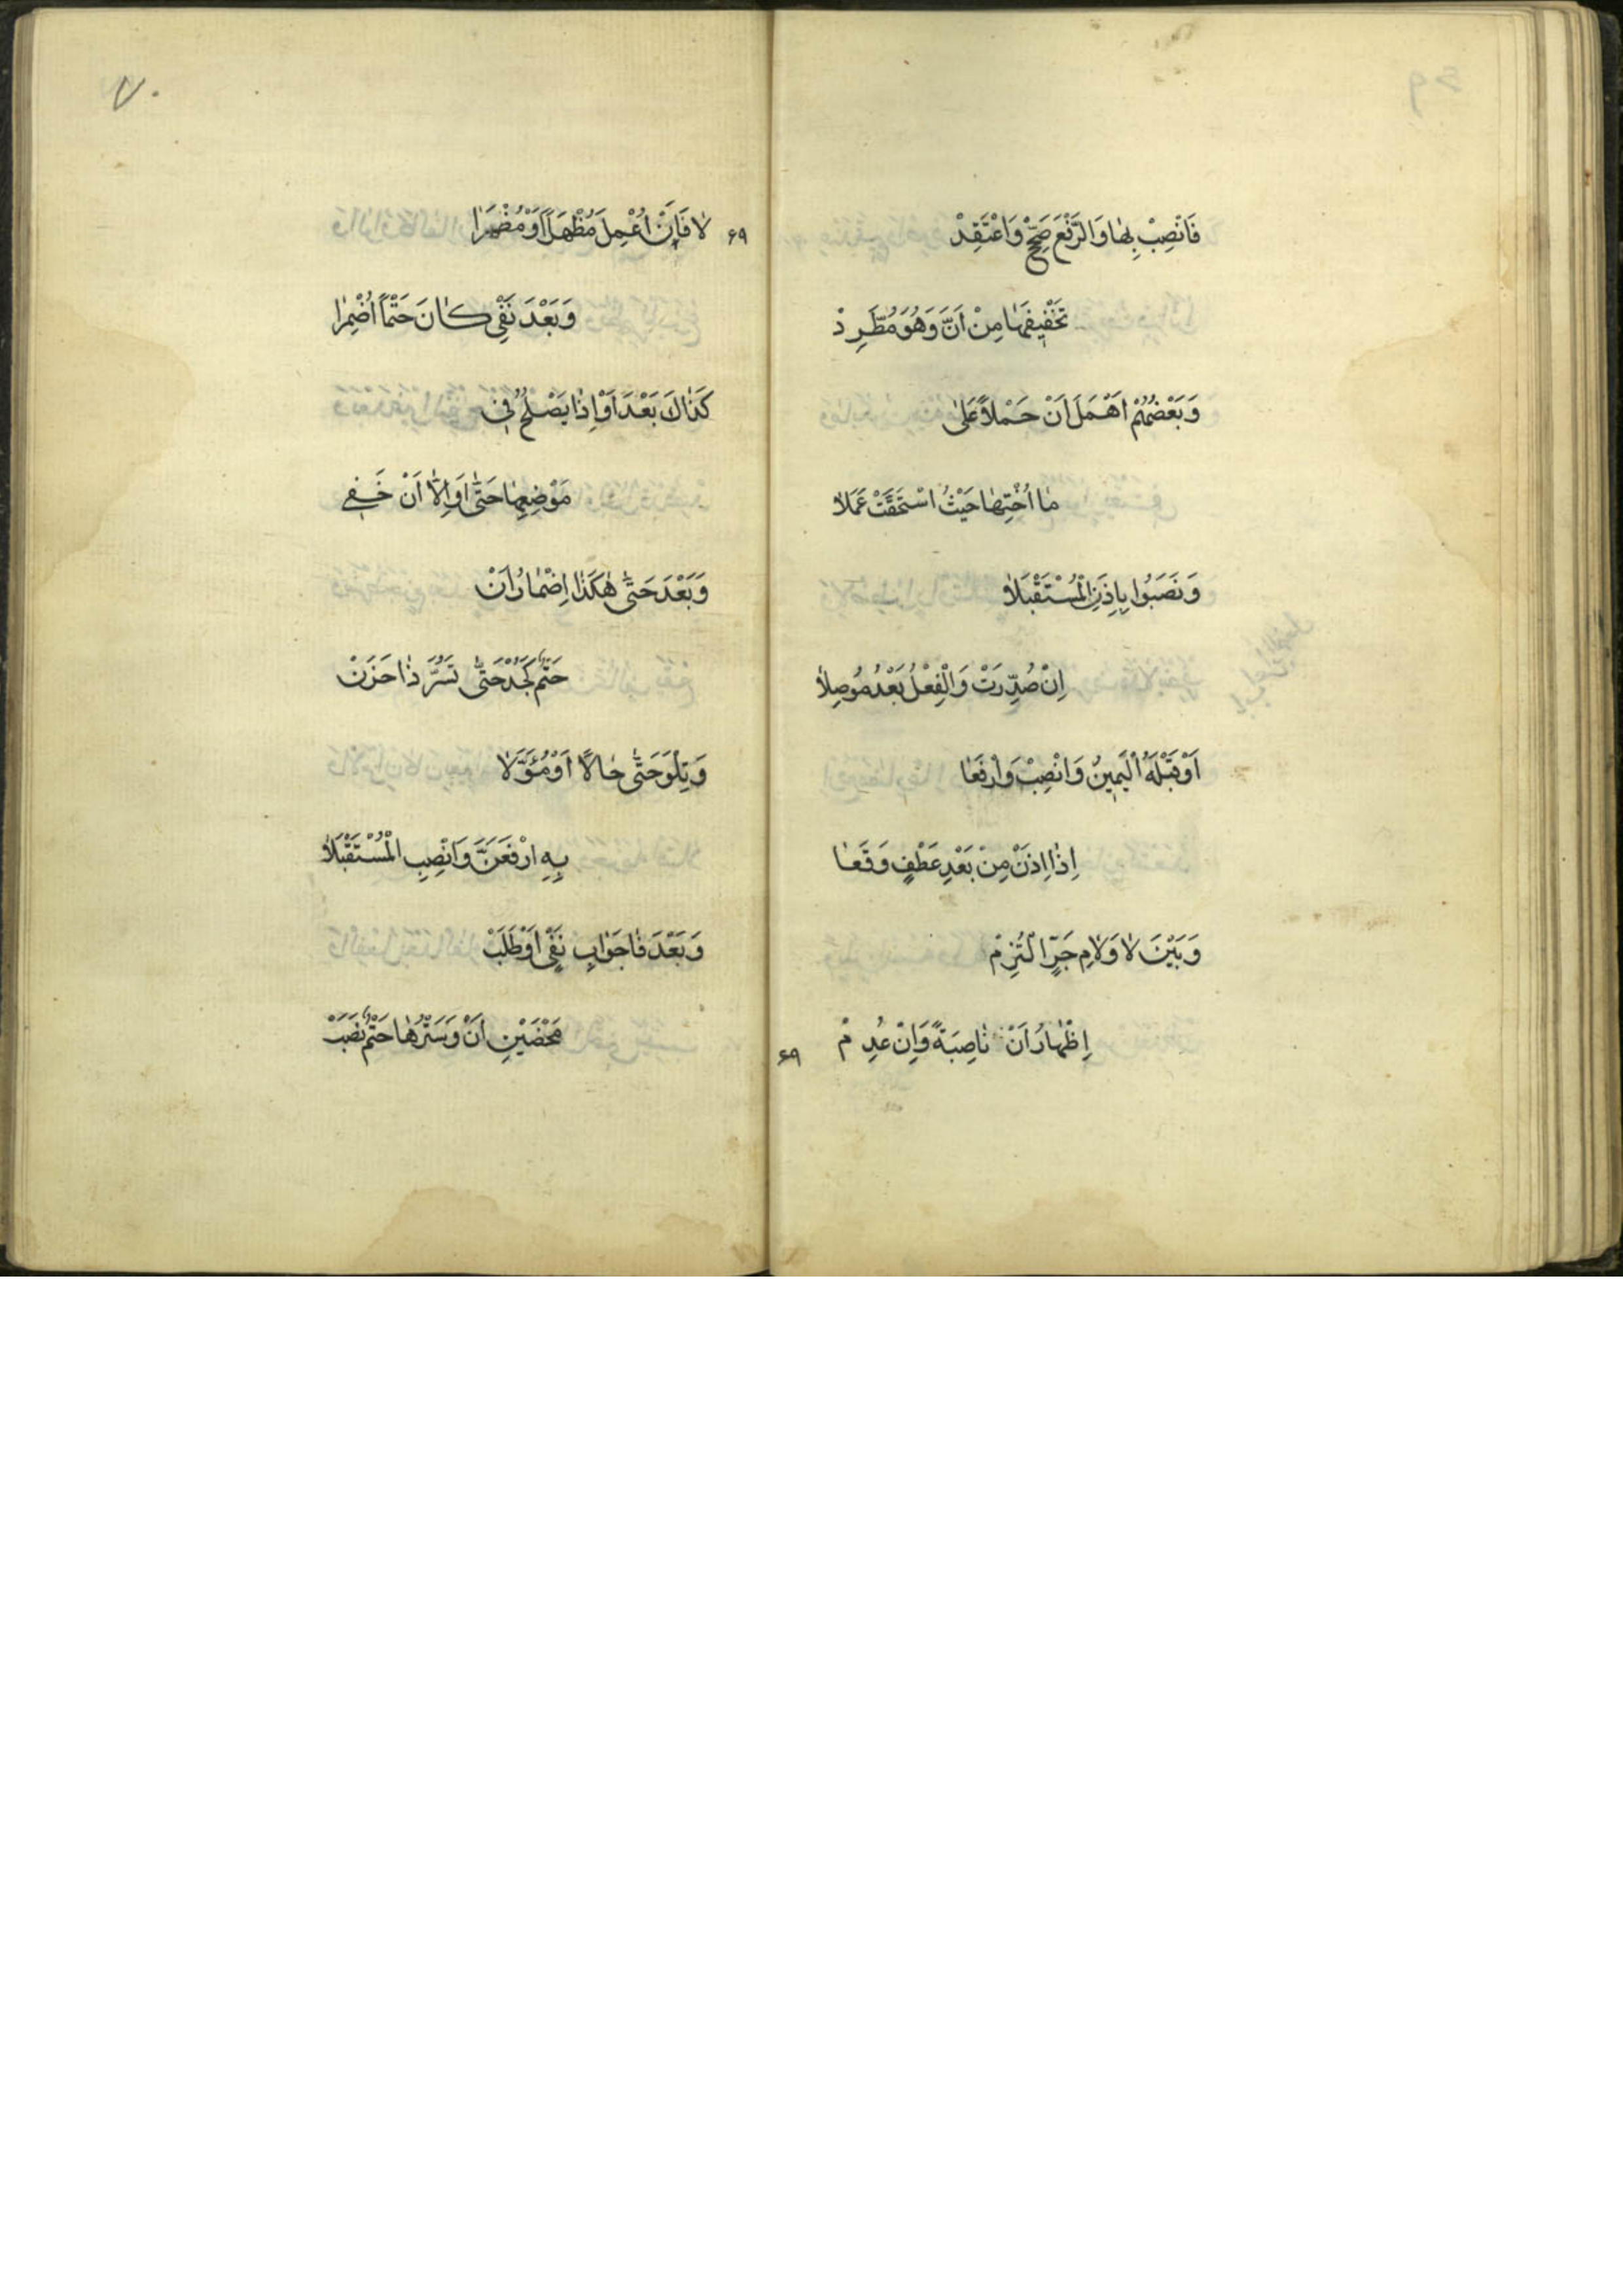 فَانْصِبْ بِهَا وَالرَّفْعَ صَحِّحْ وَاعْتَقِدْ
تَخْفِيفَهَا مِنْ اَنَّ وَهُوَ مُطَّرِدْ
وَبَعْضُهُمْ اَهْمَلَ اَنْ حَمْلاً عَلَى
مَا اُخْتِهَا حَيْثُ اسْتَحَقَّتْ عَمَلاَ
وَنَصَبُوا بِاِذَنِ الْمُسْتَقْبَلاَ
اِنْ صُدِّرَتْ وَالْفِعْلُ بَعْدُ مُوصِلاَ
اَوْ قَبْلَهُ الْيَمِينُ وَانْصِبْ وَارْفَعَا
اِذَا اِذَنْ مِنْ بَعْدِ عَطْفٍ وَقَعَا
وَبَيْنَ لاَ وَلاَمِ جَرٍّ الْتُزِمْ
اِظْهَارُ اَنْ نَاصِبَةً وَاِنْ عُدِمْ
۶۹
۷۰
۶۹
لاَ فَاِنْ اُعْمِلَ مُظْهَلاً اَوْ مُضْمَرَا
وَبَعْدَ نَفْىِ كَانَ حَتْماً اُضْمِرَا
كَذَاكَ بَعْدَ اَوْ اِذَا يَصْلُحُ فِى
مَوْضِعِهَا حَتَّى اَوِ اِلاَّ اَنْ خَفِى
وَبَعْدَ حَتَّى هٰكَذَا اِضْمَارُ اَنْ
حَتْمٌ كَجُدْ حَتَّى تَسُرَّ ذَا حَزَنْ
وَتِلْوَ حَتَّى حَالاً اَوْ مُؤَوَّلاَ
بِهِ ارْفَعَنَّ وَانْصِبِ الْمُسْتَقْبَلاَ
وَبَعْدَ فَا جَوَابِ نَفْىٍ اَوْ طَلَبْ
مَحْضَيْنِ اَنْ وَسَتْرُهَا حَتْمٌ نَصَبْ